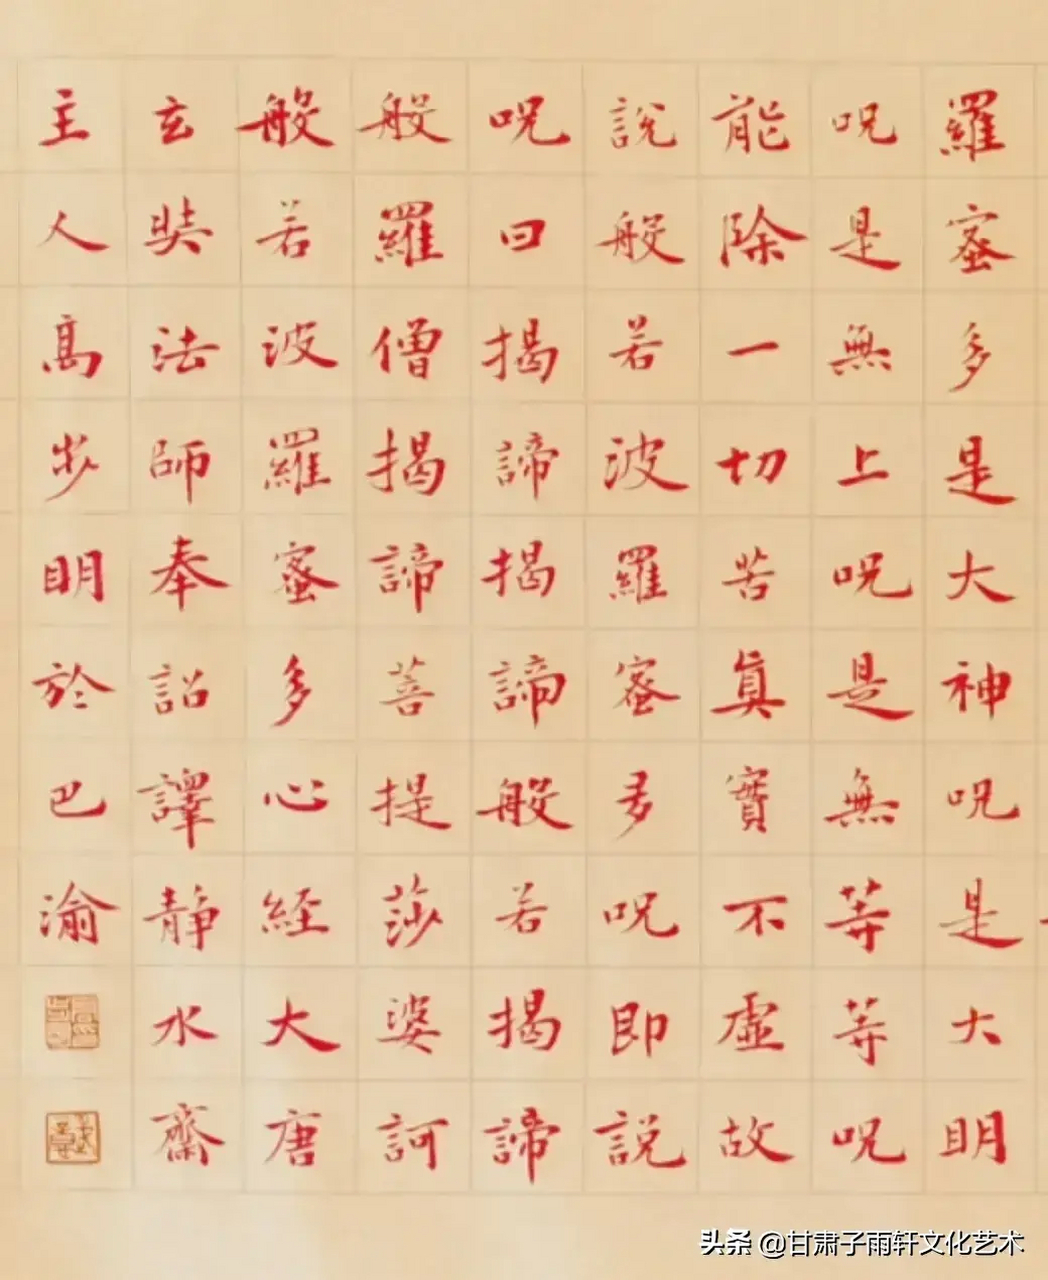 羅蜜多是大神呪是大明
呪是無上呪是無等等呪
能除一切苦真實不虛故
說般若波羅蜜多呪即説
呪曰揭諦揭諦般若揭諦
般羅僧揭諦菩提莎婆訶
般若波羅蜜多心経大唐
玄奘法師奉詔譯靜水齋
主人高步明於巴渝
头条 @甘肃子雨轩文化艺术